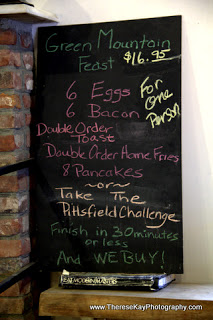 Green Mountain
Feast $16.95
6 Eggs
6 Bacon
For
One
Person
Double Order
Toast
Double Order Home Fries
8 Pancakes
~or~
Take The
Pittsfield Challenge
Finish in 30 minutes
or less
And WE BUY!
www.ThereseKayPhotography.com